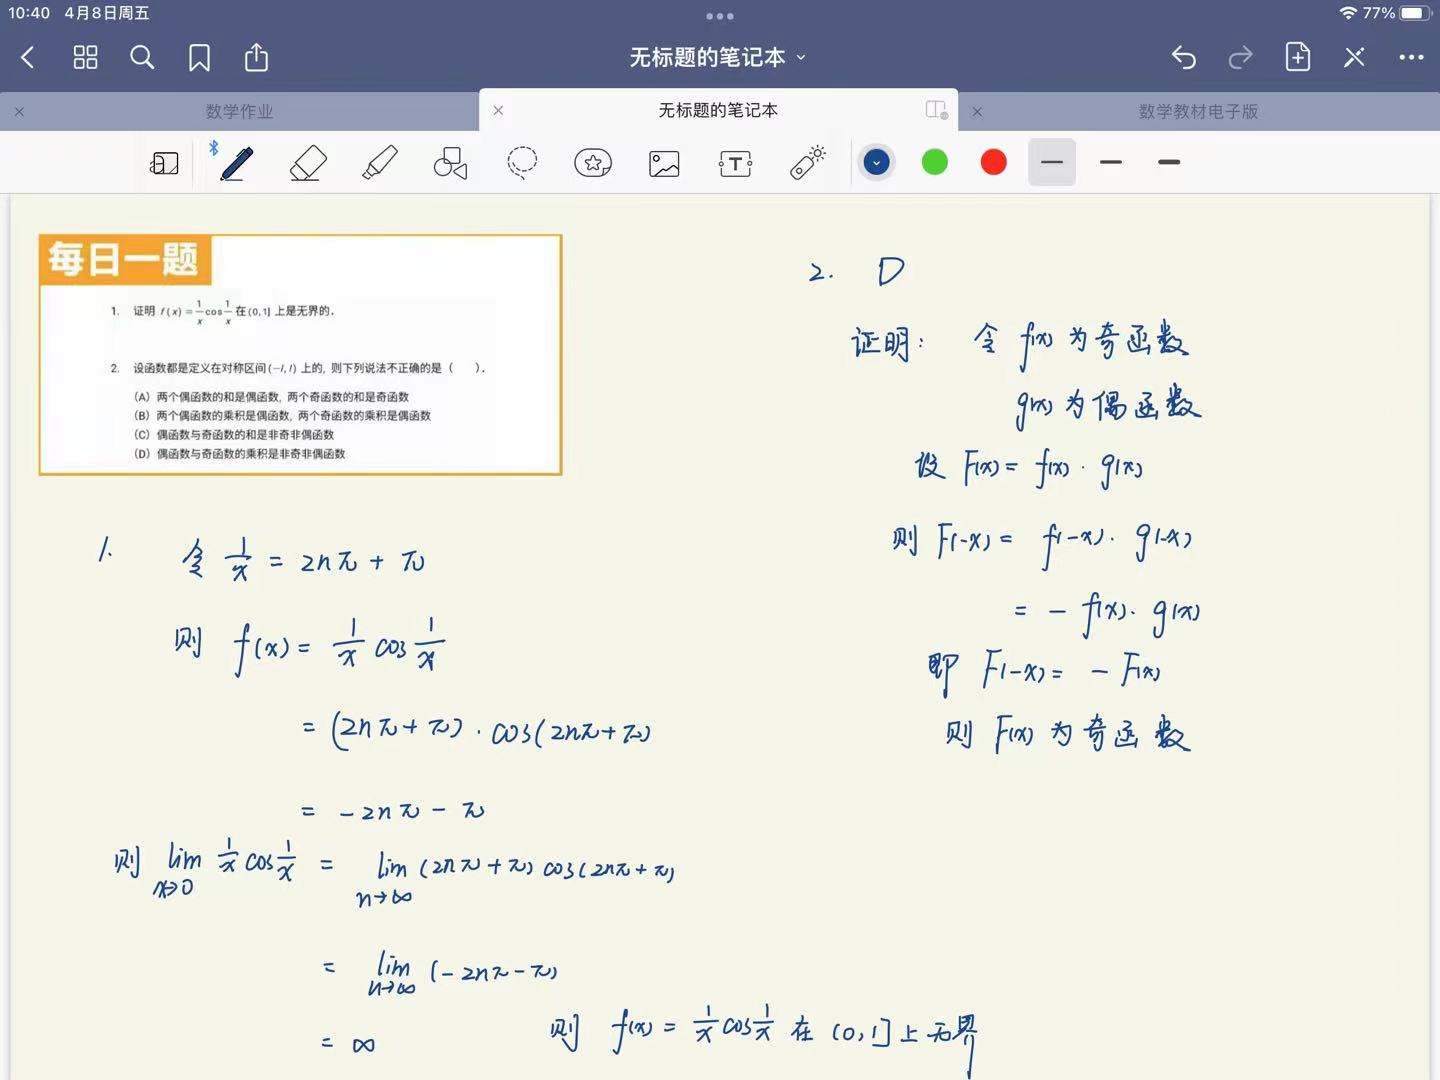 10:40 4月8日周五
77%
无标题的笔记本
数学作业
无标题的笔记本
数学教材电子版
每日一题
1. 证明 f(x)=1/x cos 1/x 在(0,1]上是无界的.
2. 设函数都是定义在对称区间(-l,l)上的, 则下列说法不正确的是( ).
(A) 两个偶函数的和是偶函数, 两个奇函数的和是奇函数
(B) 两个偶函数的乘积是偶函数, 两个奇函数的乘积是偶函数
(C) 偶函数与奇函数的和是非奇非偶函数
(D) 偶函数与奇函数的乘积是非奇非偶函数
1. 令 1/x = 2nπ + π
则 f(x) = 1/x cos 1/x
= (2nπ + π) · cos(2nπ+π)
= -2nπ - π
则 lim x→0 1/x cos 1/x = lim n→∞ (2nπ + π) cos(2nπ + π)
= lim n→∞ (-2nπ-π)
= ∞
则 f(x) = 1/x cos 1/x 在 (0,1] 上无界
2. D
证明: 令 f(x) 为奇函数
g(x) 为偶函数
设 F(x) = f(x) · g(x)
则 F(-x) = f(-x) · g(-x)
= - f(x) · g(x)
即 F(-x) = - F(x)
则 F(x) 为奇函数